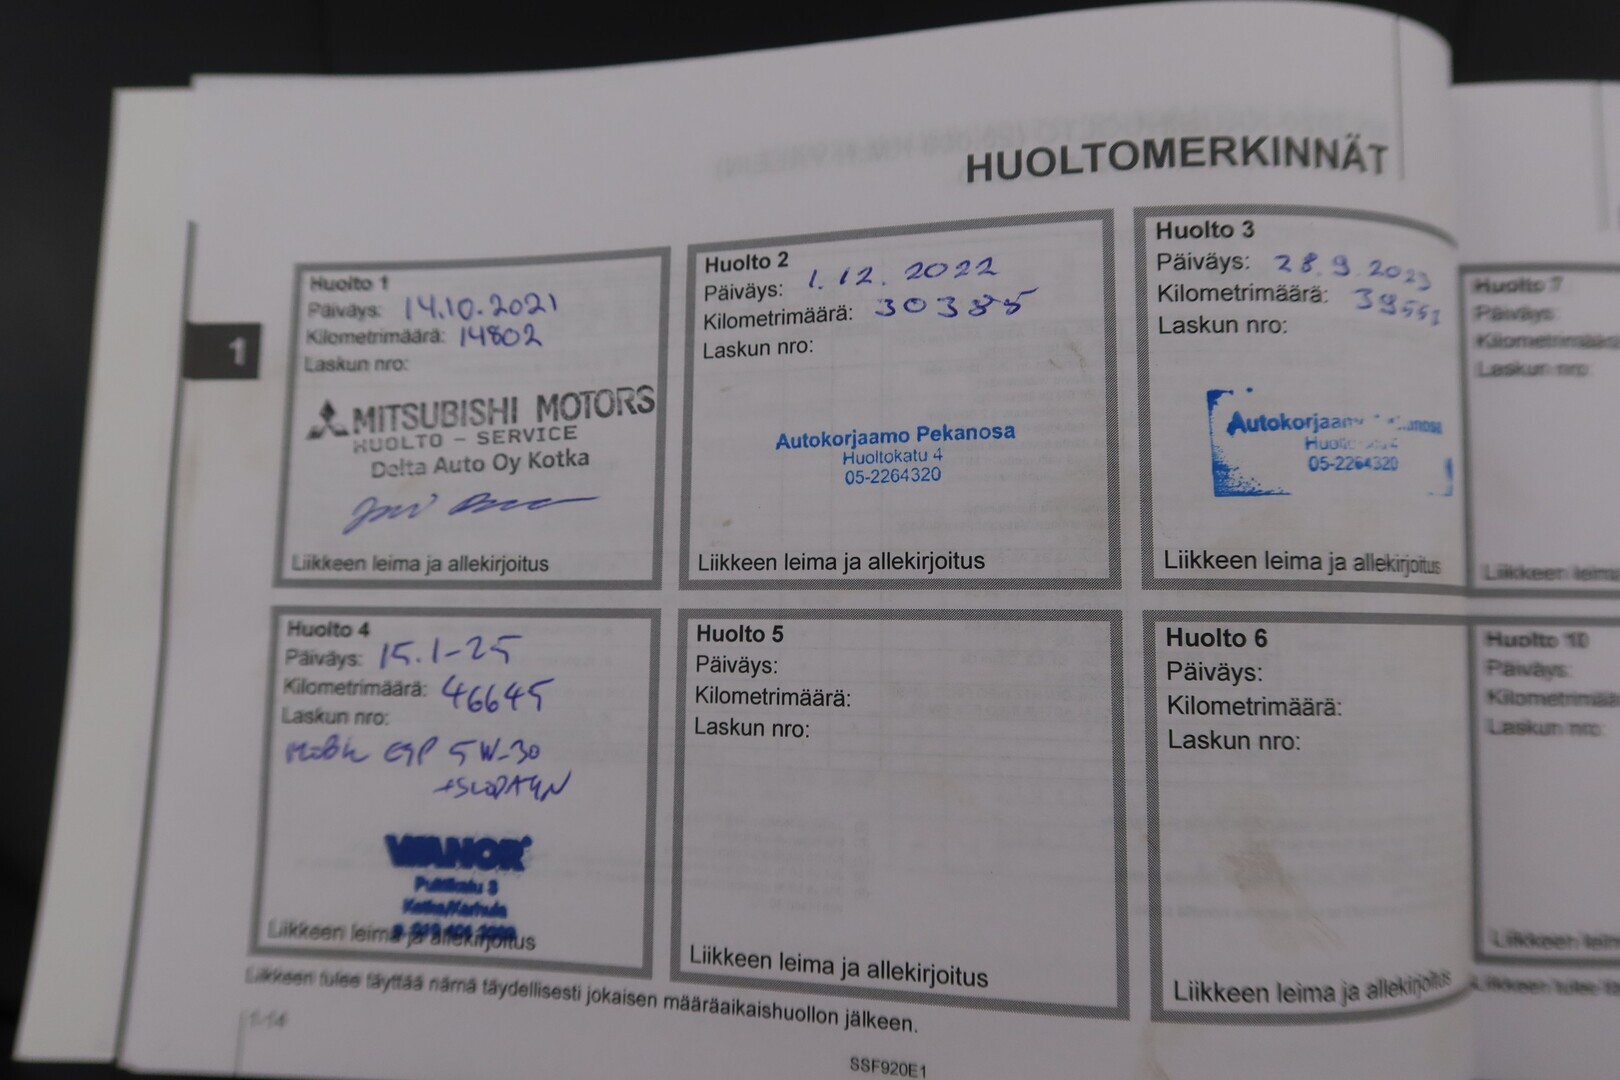 HUOLTOMERKINNÄT
1
Huolto 1
Päiväys: 14.10.2021
Kilometrimäärä: 14802
Laskun nro:
MITSUBISHI MOTORS
HUOLTO - SERVICE
Delta Auto Oy Kotka
Liikkeen leima ja allekirjoitus
Huolto 2
Päiväys: 1.12.2022
Kilometrimäärä: 30385
Laskun nro:
Autokorjaamo Pekanosa
Huoltokatu 4
05-2264320
Liikkeen leima ja allekirjoitus
Huolto 3
Päiväys: 28.9.2023
Kilometrimäärä:
Laskun nro:
05-2264320
Liikkeen leima ja allekirjoitus
Huolto 4
Päiväys: 15.1-25
Kilometrimäärä: 46645
Laskun nro:
5W-30
VIANOR
Kotka/Karhula
Liikkeen leima ja allekirjoitus
Huolto 5
Päiväys:
Kilometrimäärä:
Laskun nro:
Liikkeen leima ja allekirjoitus
Huolto 6
Päiväys:
Kilometrimäärä:
Laskun nro:
Liikkeen leima ja allekirjoitus
Huolto 7
Päiväys:
Laskun nro:
Liikkeen
Huolto 10
Päiväys:
Laskun nro:
Liikkeen
Liikkeen tulee täyttää nämä täydellisesti jokaisen määräaikaishuollon jälkeen.
1-14
SSF920E1